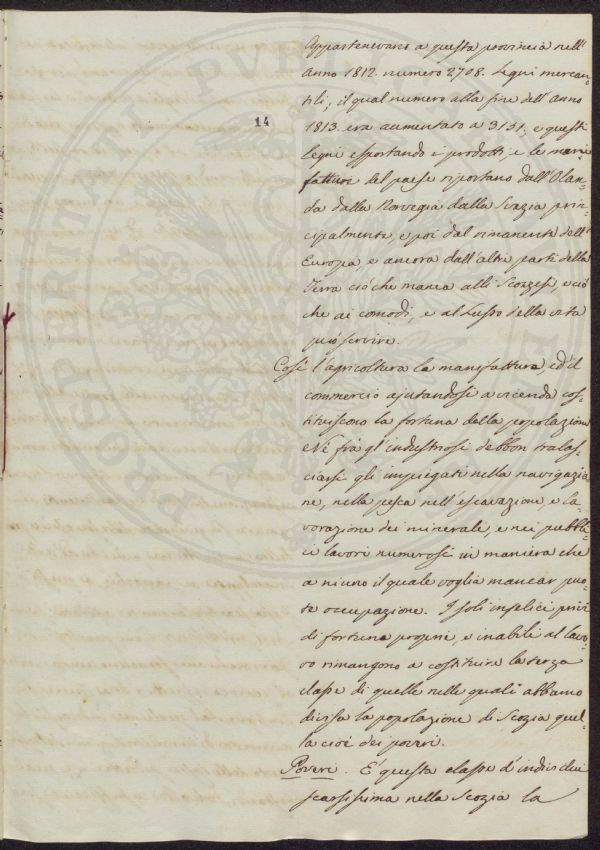 Appartenevano a questa provincia nell'
Anno 1812. numero 2708. Legni mercan-
tili, il qual numero alla fine dell'anno
14
1813. era aumentato a 3131, e questi
Legni esportando i prodotti, e le mani
fatture del paese riportano dall'Olan-
da dalla Norvegia dalla Svezia prin-
cipalmente, e poi dal rimanente dell'
Europa, e ancora dall'altre parti della
Terra ciò che manca alli Scozzesi, e ciò
che ai comodi, e al Lusso della vita
può servire.
Così l'agricoltura la manifattura, ed il
commercio ajutandosi a vicenda cos-
tituiscono la fortuna della popolazione
Nè frà gl'industriosi debbon tralas-
ciarsi gli impiegati nella navigazio
ne, nella pesca nell'escavazione, e la-
vorazione dei minerali, e nei pubbli-
ci lavori numerosi in maniera che
a niuno il quale voglia mancar puo-
te occupazione. I soli infelici privi
di fortune proprie, e inabili al lavo-
ro rimangono a costituire la terza
classe di quelle nelle quali abbiamo
divisa la popolazione di Scozia quel
la cioè dei poveri.
Poveri. È questa classe d'individui
scarsissima nella Scozia la
PROSPERITATI PVBLICAE